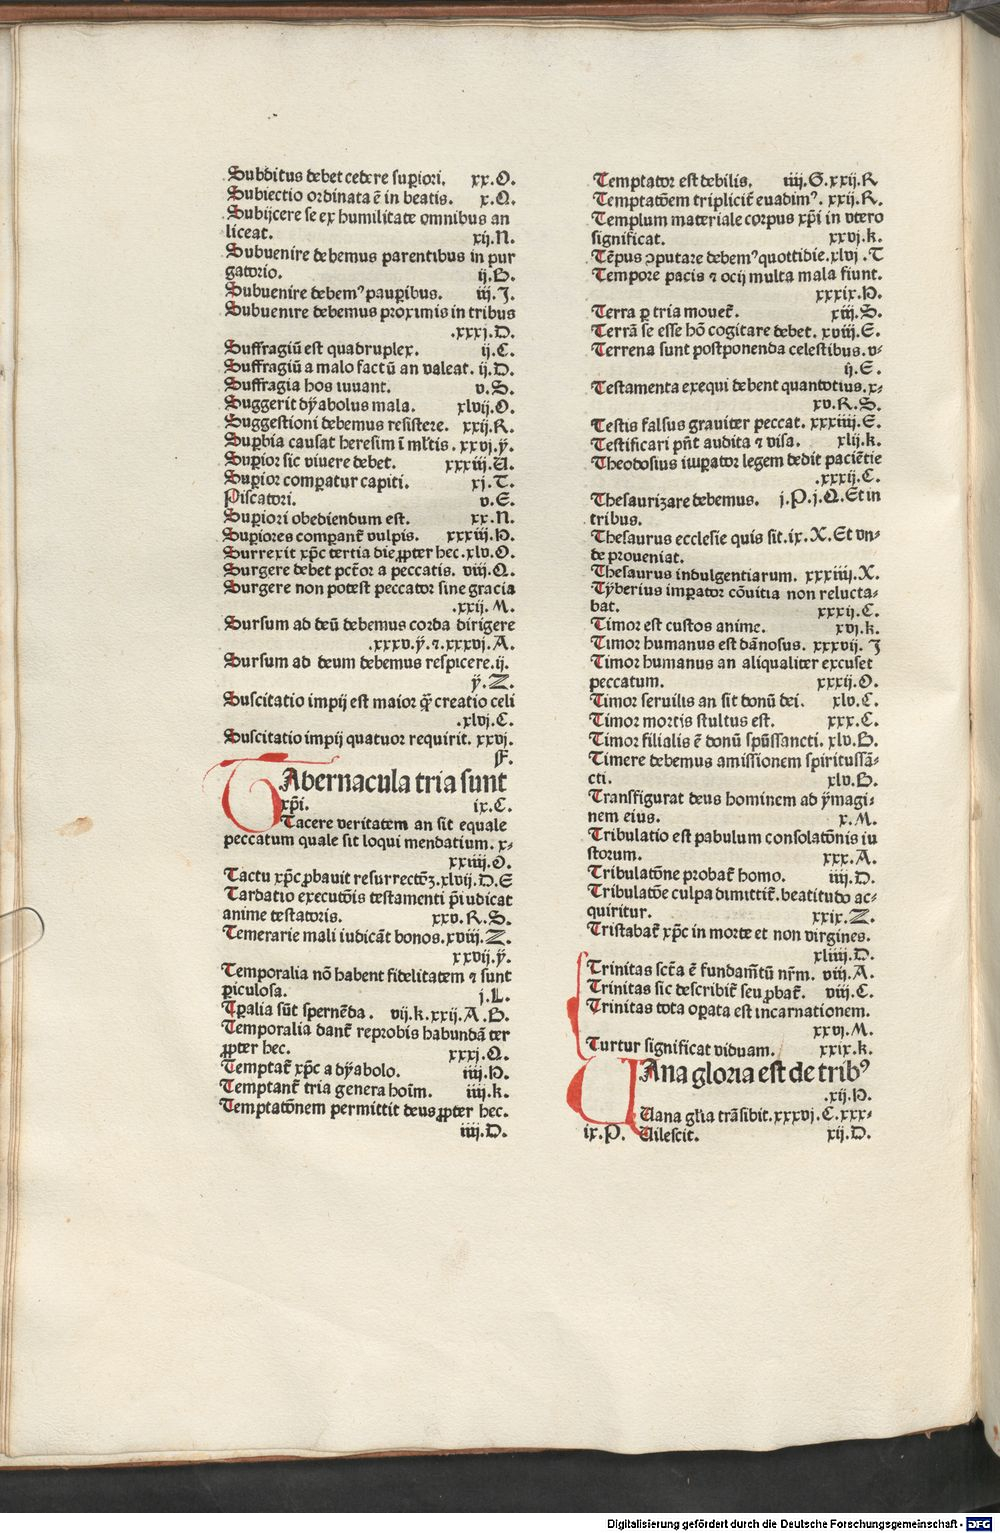 Subditus debet cedere suꝑiori. xx.O.
Subiectio ordinata ē in beatis. x.Q.
Subijcere se ex humilitate omnibus an
liceat. xij.N.
Subuenire debemus parentibus in pur
gatorio. ij.B.
Subuenire debemꝰ pauꝑibus. iij.J.
Subuenire debemus proximis in tribus
.xxxj.D.
Suffragiū est quadruplex. ij.C.
Suffragiū a malo factū an valeat. ij.D.
Suffragia hos iuuant. v.S.
Suggerit dÿabolus mala. xlvij.O.
Suggestioni debemus resistere. xxij.R.
Suꝑbia causat heresim ī ml̄tis. xxvj.ÿ.
Suꝑior sic viuere debet. xxxiij.A.
Suꝑior comꝑatur capiti. xj.T.
Piscatori. v.E.
Suꝑiori obediendum est. xx.N.
Suꝑiores comꝑant᷑ vulpis. xxxiij.H.
Surrexit xp̄c tertia die ꝓpter hec. xlv.O.
Surgere debet pctōr a peccatis. viij.Q.
Surgere non potest peccator sine gracia
.xxij.M.
Sursum ad deū debemus corda dirigere
.xxxv.ÿ.⁊.xxxvj.A.
Sursum ad deum debemus respicere. ij.
ÿ.Z.
Suscitatio impij est maior q̄ creatio celi
.xlvj.C.
Suscitatio impij quatuor requirit. xxvj.
F.
TAbernacula tria sunt
xp̄i. ix.C.
Tacere veritatem an sit equale
peccatum quale sit loqui mendatium. x-
xxiiij.O.
Tactu xp̄c ꝓbauit resurrectōꝫ. xlvij.D.E
Tardatio executōis testamenti p̄iudicat
anime testatoris. xxv.R.S.
Temerarie mali iudicāt bonos. xviij.Z.
xxvij.ÿ.
Temporalia nō habent fidelitatem ⁊ sunt
ꝑiculosa. j.L.
Tꝑalia sūt spernēda. vij.k.xxij.A.B.
Temporalia dant᷑ reprobis habundāter
ꝓpter hec. xxxj.Q.
Temptat᷑ xp̄c a dÿabolo. iiij.H.
Temptant᷑ tria genera hoīm. iiij.k.
Temptatōnem permittit deus ꝓpter hec.
iiij.D.
Temptator est debilis. iiij.G.xxij.R
Temptatōem triplicit᷑ euadimꝰ. xxij.R.
Templum materiale corpus xp̄i in vtero
significat. xxvj.k.
Tēpus ꝯputare debemꝰ quottidie. xlvj.T
Tempore pacis ⁊ ocij multa mala fiunt.
xxxix.H.
Terra ꝑ tria mouet᷑. xiij.S.
Terrā se esse hō cogitare debet. xviij.E.
Terrena sunt postponenda celestibus. v-
ij.E.
Testamenta exequi debent quantotius. x-
xv.R.S.
Testis falsus grauiter peccat. xxxiiij.E.
Testificari pn̄t audita ⁊ visa. xlij.k.
Theodosius imꝑator legem dedit paciētie
.xxxij.C.
Thesaurizare debemus. j.P.j.Q.Et in
tribus.
Thesaurus ecclesie quis sit. ix.X.Et vn-
de proueniat.
Thesaurus indulgentiarum. xxxiiij.X.
Tÿberius imꝑator cōuitia non relucta-
bat. xxxij.C.
Timor est custos anime. xvj.k.
Timor humanus est dānosus. xxxvij.J
Timor humanus an aliqualiter excuset
peccatum. xxxij.O.
Timor seruilis an sit donū dei. xlv.C.
Timor mortis stultus est. xxx.C.
Timor filialis ē donū spūssancti. xlv.B.
Timere debemus amissionem spiritussā-
cti. xlv.B.
Transfigurat deus hominem ad ÿmagi-
nem eius. x.M.
Tribulatio est pabulum consolatōnis iu
storum. xxx.A.
Tribulatōne probat᷑ homo. iiij.D.
Tribulatōe culpa dimittit᷑. beatitudo ac-
quiritur. xxix.Z.
Tristabat᷑ xp̄c in morte et non virgines.
xliiij.D.
Trinitas sctā ē fundamētū nr̄m. viij.A.
Trinitas sic describit᷑ seu ꝓbat᷑. viij.C.
Trinitas tota oꝑata est incarnationem.
xxvj.M.
Turtur significat viduam. xxix.k.
UAna gloria est de tribꝰ
.xij.H.
Uana gl̄ia trāsibit. xxxvj.C.xxx-
ix.P. Uilescit. xij.D.
Digitalisierung gefördert durch die Deutsche Forschungsgemeinschaft - DFG